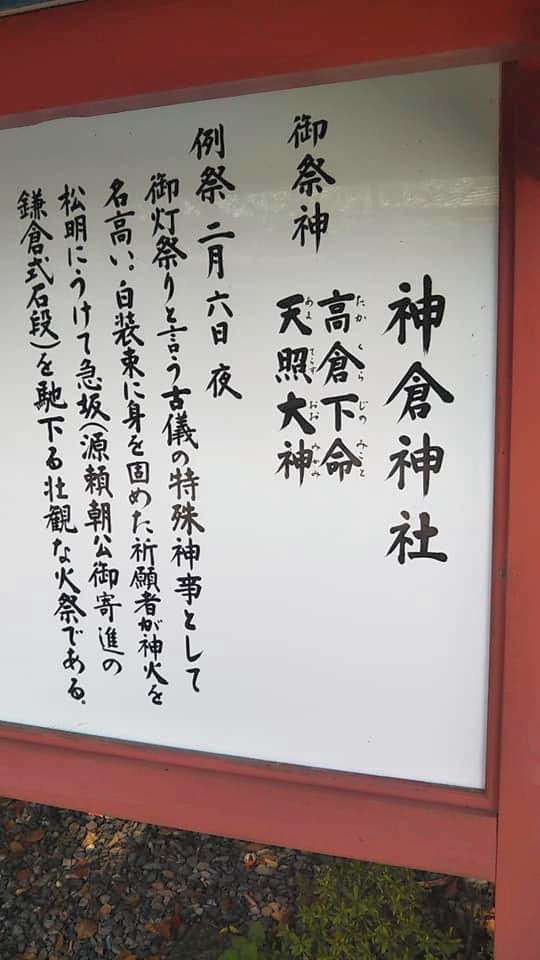 神倉神社
御祭神
高倉下命
たかくらじのみこと
天照大神
あまてらすおおみかみ
例祭 二月六日 夜
御灯祭りと言う古儀の特殊神事として
名高い。白装束に身を固めた祈願者が神火を
松明にうけて急坂(源頼朝公御寄進の
鎌倉式石段)を馳下る壮観な火祭である。